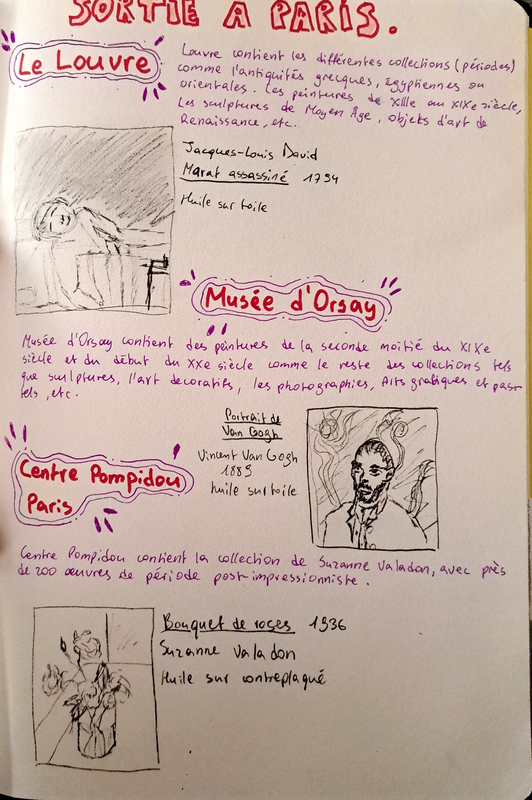 SORTIE A PARIS.
Le Louvre
Louvre contient les différentes collections (périodes)
comme l'antiquités grecques, Egyptiennes ou
orientales. Les peintures de XIIIe au XIXe siècle,
Les sculptures de Moyen Âge, objets d'art de
Renaissance, etc.
Jacques-Louis David
Marat assassiné 1794
Huile sur toile
Musée d'Orsay
Musée d'Orsay contient des peintures de la seconde moitié du XIXe
siècle et du début du XXe siècle comme le reste des collections tels
que sculptures, l'art decoratifs, les photographies, Arts grafiques et pas-
tels, etc.
Portrait de
Van Gogh
Vincent Van Gogh
1889
huile sur toile
Centre Pompidou
Paris
Centre Pompidou contient la collection de Suzanne Valadon, avec près
de 200 œuvres de période post-impressionniste.
Bouquet de roses 1936
Suzanne Valadon
Huile sur contreplaqué